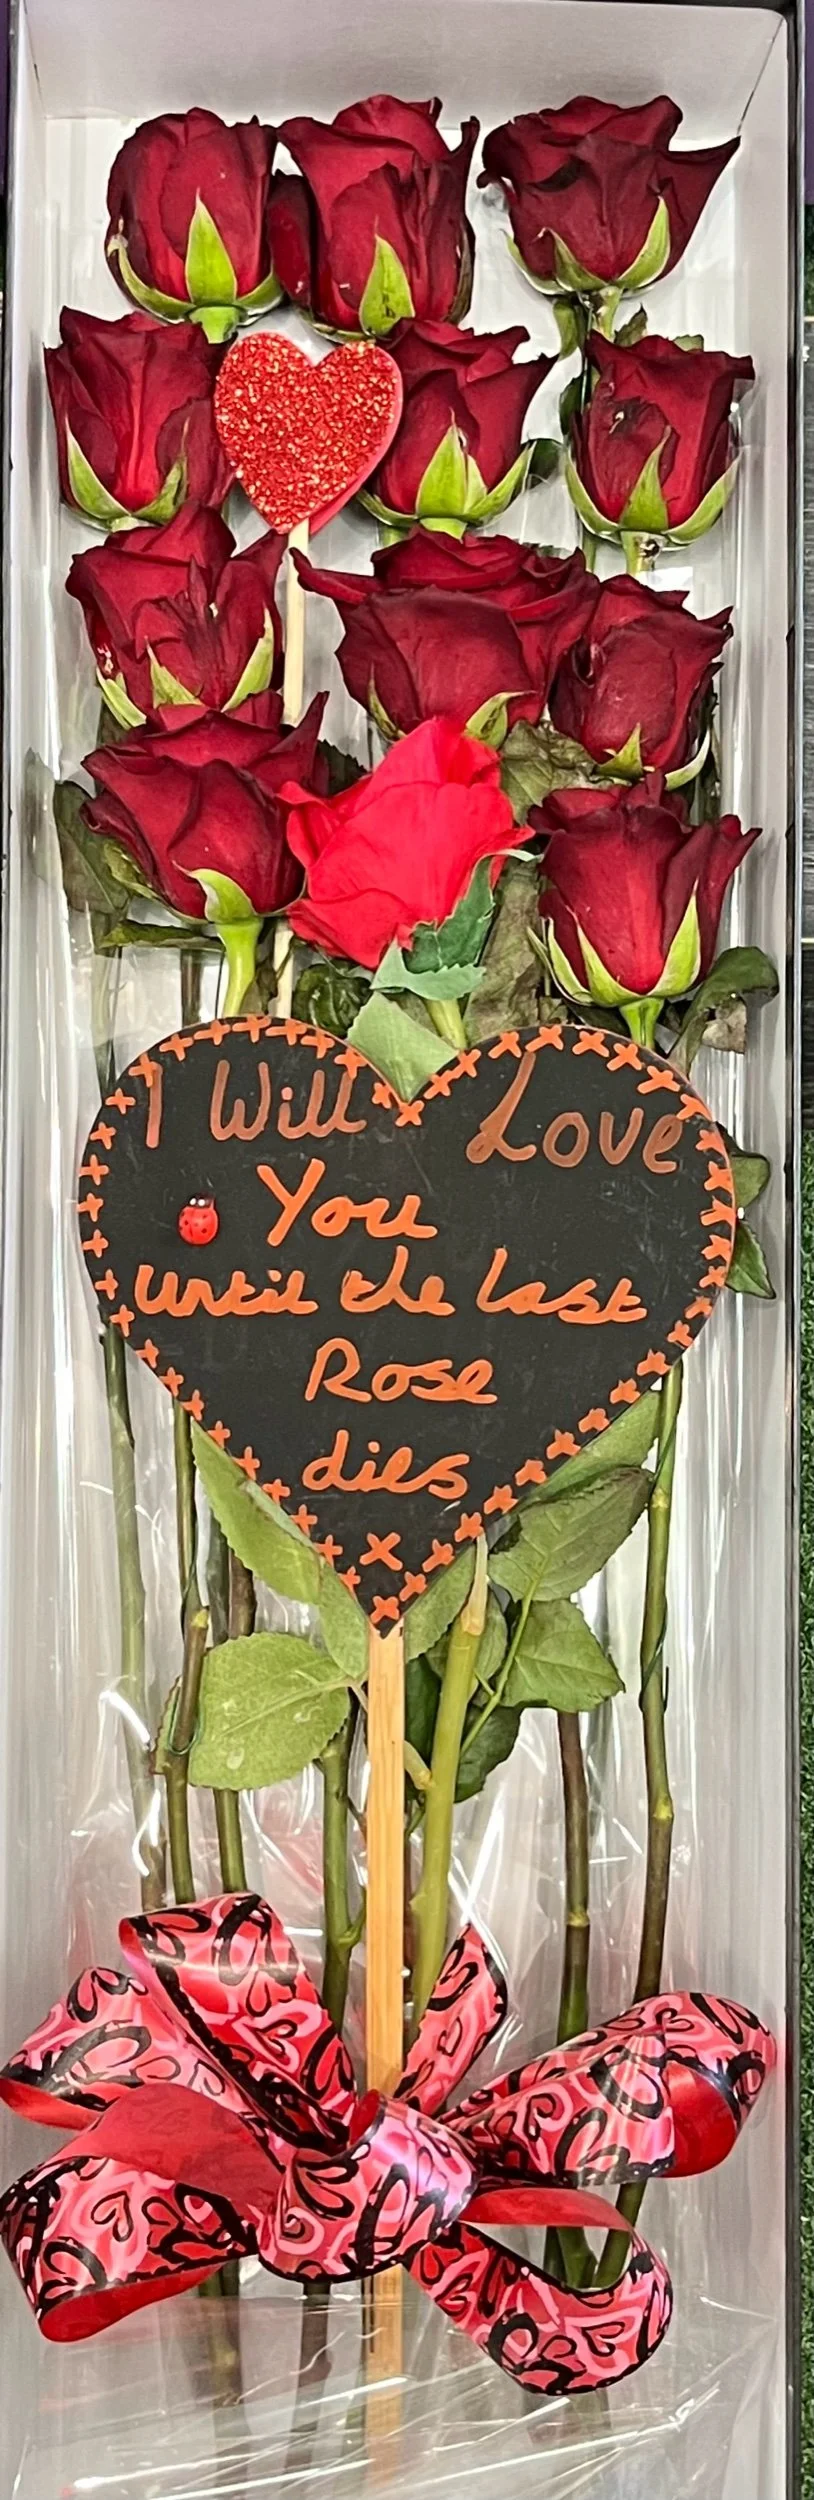 I Will Love
You
until the last
Rose
dies